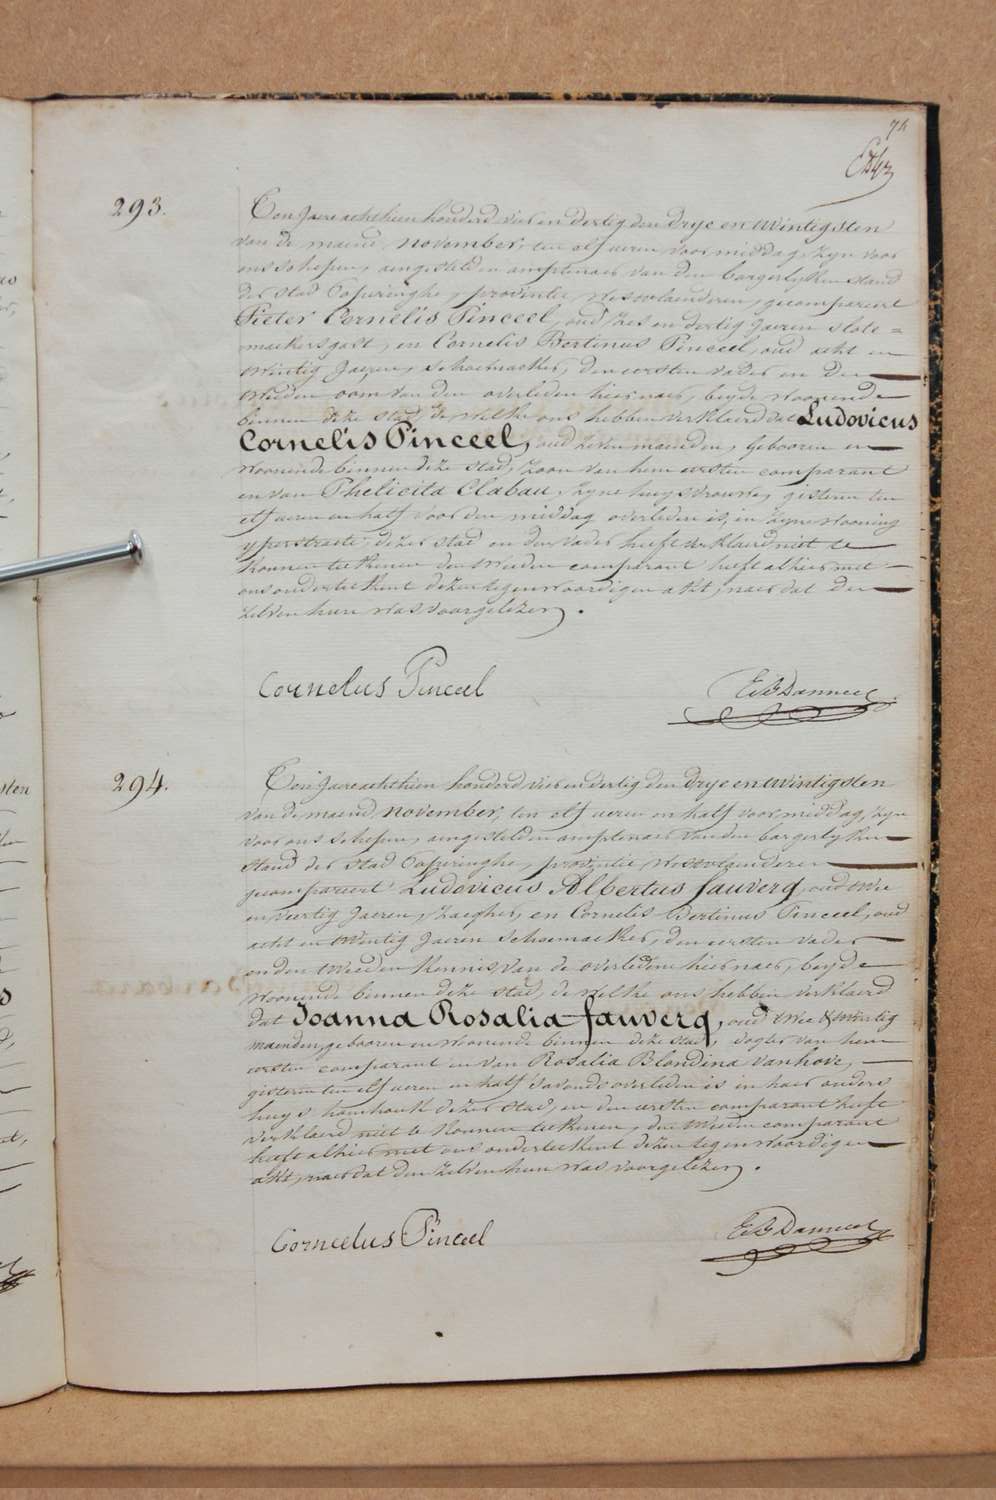 74
293.
Ten Jaere achthien honderd vier en dertig den drye en twintigsten
van de maend november, ten elf ueren voor middag, zyn voor
ons schepen, aengestelden amptenaer van den borgerlyken stand
der stad Poperinghe, provintie, westvlaenderen, gecompareert
Pieter Cornelis Pinceel, oud zes en dertig Jaeren slote=
maekersgast, en Cornelis Bertinus Pinceel, oud acht en
twintig Jaeren, schoemaeker, den eersten vader en den
tweeden oom van den overleden hier naer, beyde woonende
binnen deze stad, de welke ons hebben verklaerd dat Ludovicus
Cornelis Pinceel, oud zeven maenden, gebooren en
woonende binnen deze stad, zoon van hem eersten comparant
en van Phelicita Clabau, zyne huysvrouwe, gisteren ten
elf ueren en half voor den middag overleden is, in zyne wooning
yperstraete dezer stad en den vader heeft verklaerd niet te
konnen teekenen den tweeden comparant heeft alhier met
ons onderteekent dezen tegenwoordigen akt, naer dat den
zelven hun was voorgelezen.
Cornelus Pinceel
294.
Ten Jaere achthien honderd vier en dertig den drye en twintigsten
van de maend november, ten elf ueren en half voor middag, zyn
voor ons schepen, aengestelden amptenaer van den borgerlyken
stand der stad Poperinghe, provintie, westvlaenderen
gecompareert Ludovicus Albertus fauverq, oud twee
en veertig Jaeren, zaegher, en Cornelis Bertinus Pinceel, oud
acht en twintig Jaeren schoemaeker, den eersten vader
en den tweeden kennis van de overledene hier naer, beyde
woonende binnen deze stad, de welke ons hebben verklaerd
dat Joanna Rosalia fauverq, oud twee & twintig
maenden, gebooren en woonende binnen deze stad, dogter van hem
eersten comparant en van Rosalia Blondina vanhove,
gisteren ten elf ueren en half s'avonds overleden is in haer ouders
huys dezer stad, en den eersten comparant heeft
verklaerd niet te konnen teekenen, den tweeden comparant
heeft alhier met ons onderteekent dezen tegenwoordigen
akt, naer dat den zelven hun was voorgelezen.
Cornelus Pinceel